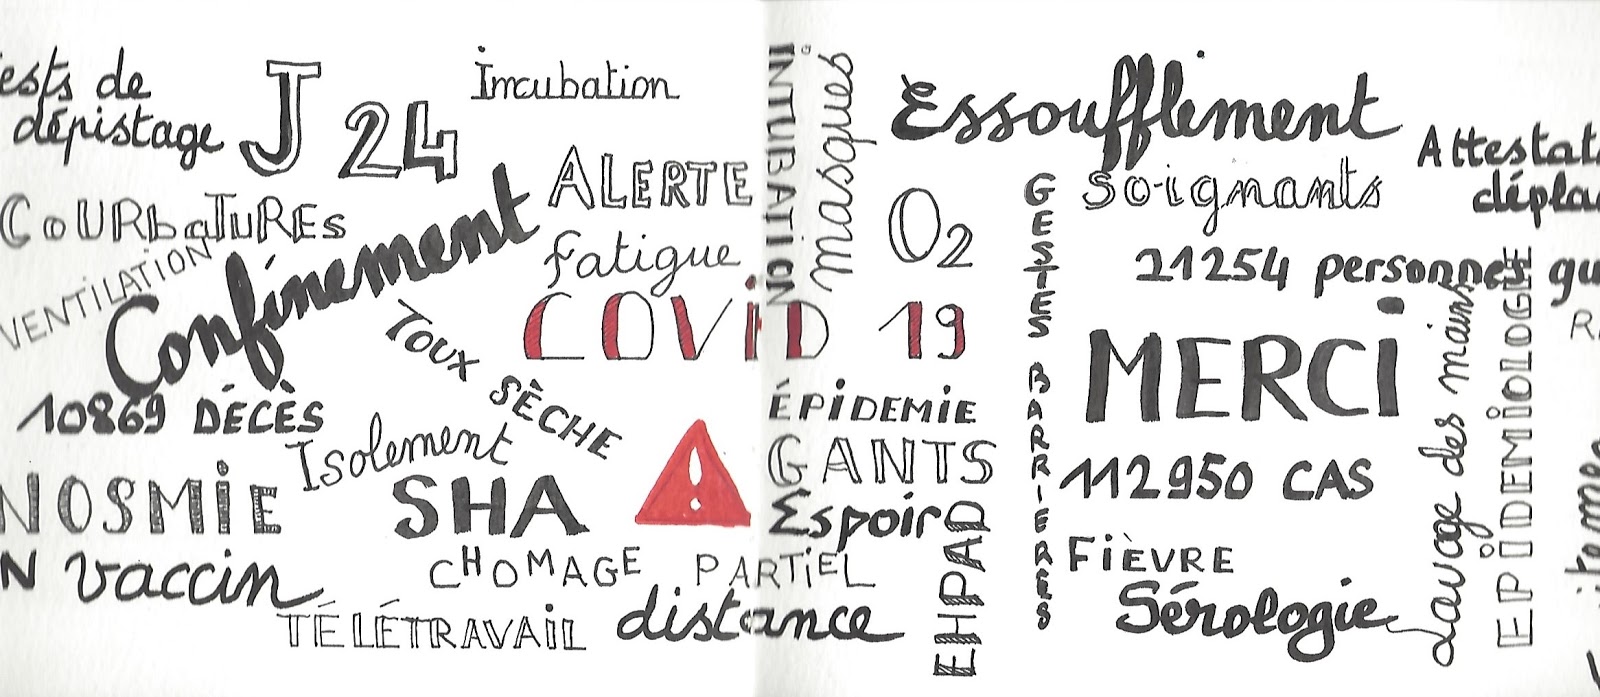 ests de
dépistage
J 24
Incubation
COURBATUREs
VENTILATION
Confinement
ALERTE
fatigue
INTUBATION
masques
Essoufflement
Attestat
déplac
O2
GESTES BARRIERES
soignants
21254 personnes gu
COViD 19
TOUX SÈCHE
10869 DÉCÈS
Isolement
ÉPiDEMiE
GANTS
MERCi
Lavage des mains
EPiDEMiOLOGiE
NOSMiE
SHA
!
Espoir
EHPAD
112950 CAS
N
vaccin
CHOMAGE PARTiEL
FIÈVRE
TÉLÉTRAVAiL
distance
Sérologie